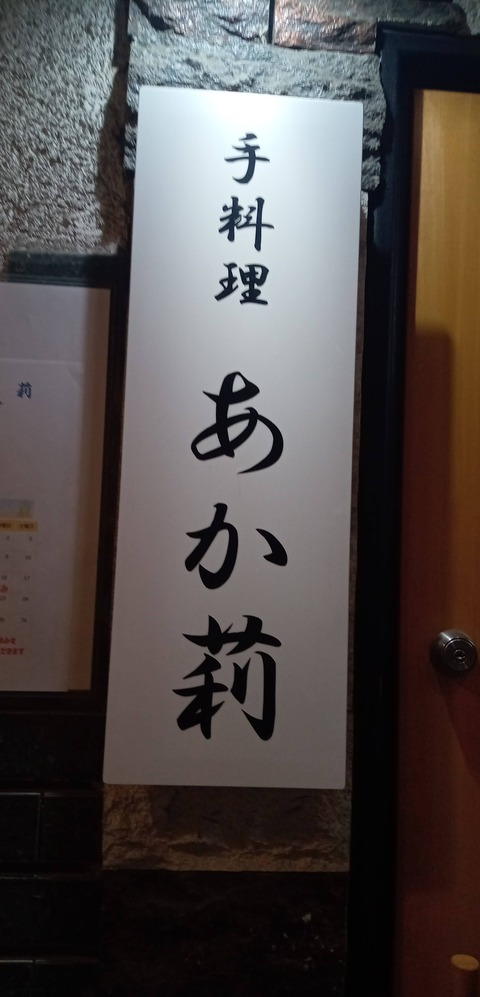 手料理
あか莉
莉